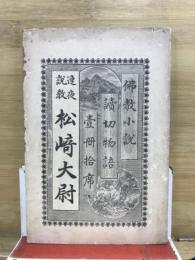 佛教小説
讀切物語
壹册拾席
連夜
説教
松崎大尉